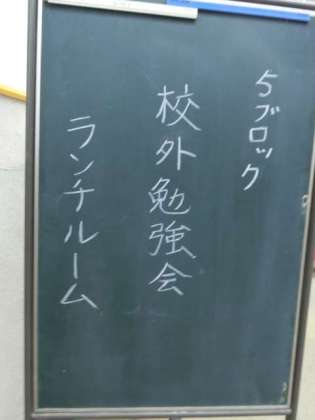 5ブロック
校外勉強会
ランチルーム